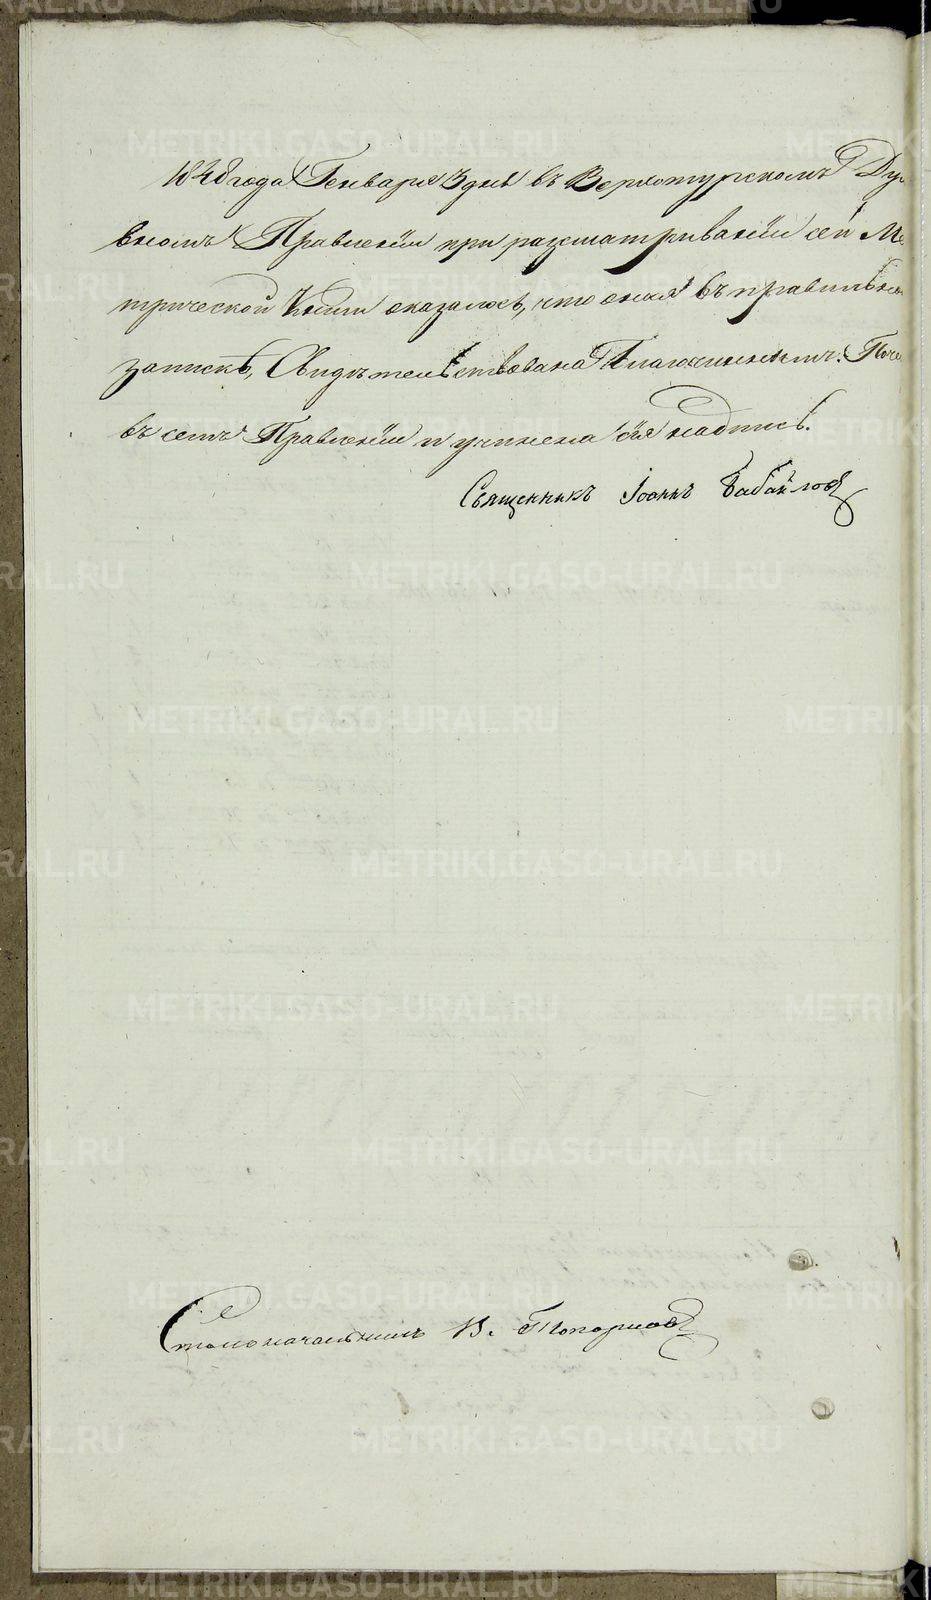 1848 года Генваря 3 дня въ Верхотурскомъ Ду
вномъ Правленіи при разсматриваніи сей Ме
трической Книги оказалось, что оная въ правильно
запискѣ, Свидѣтельствована Благочиннымъ. Поче
въ семъ Правленіи и учинена сія надпись.
Священникъ Іоаннъ Бабайловъ
Столоначальникъ В. Топорковъ
METRIKI.GASO-URAL.RU